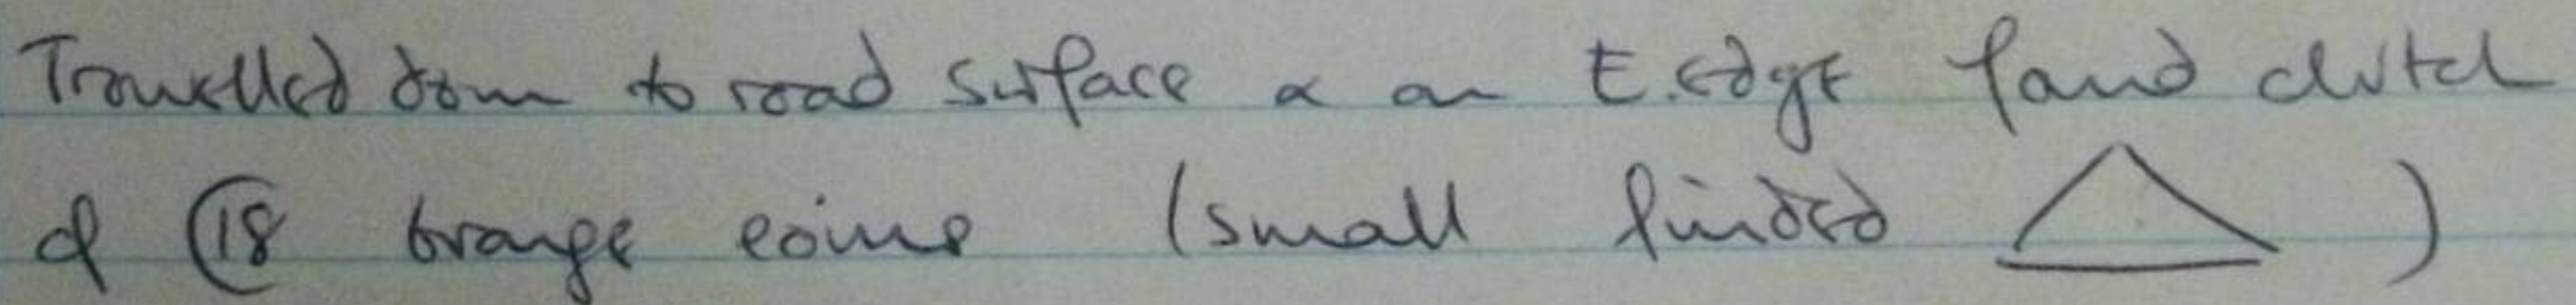 Trowelled down to road surface & on E. edge found clutch
of 18 bronze coins (small finded △)